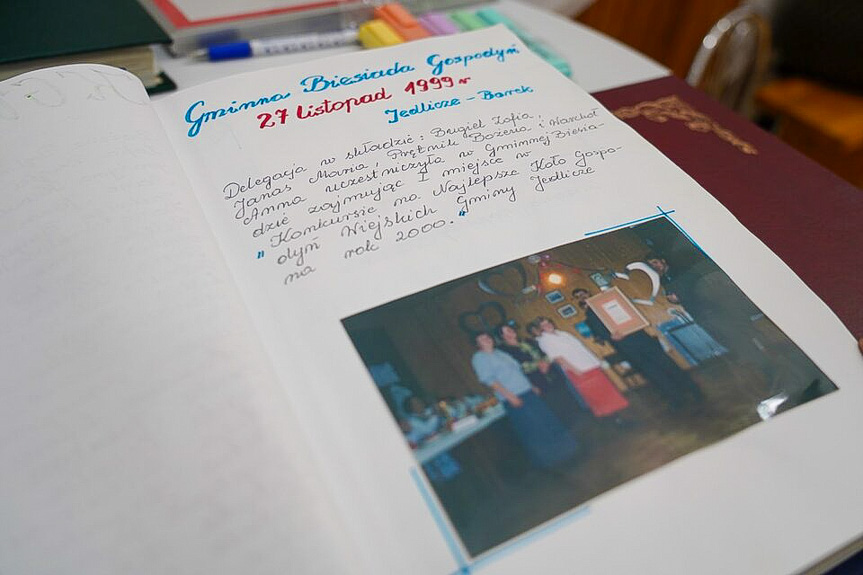 Gminna Biesiada Gospodyń
27 listopad 1999 r
Jedlicze - Borek
Delegacja w składzie: Brygiel Zofia,
Janas Maria, Prętnik Bożena i Warchoł
Anna uczestniczyła w Gminnej Biesia-
dzie zajmując I miejsce w
"Konkursie na Najlepsze Koło Gospo-
dyń Wiejskich Gminy Jedlicze
na rok 2000."